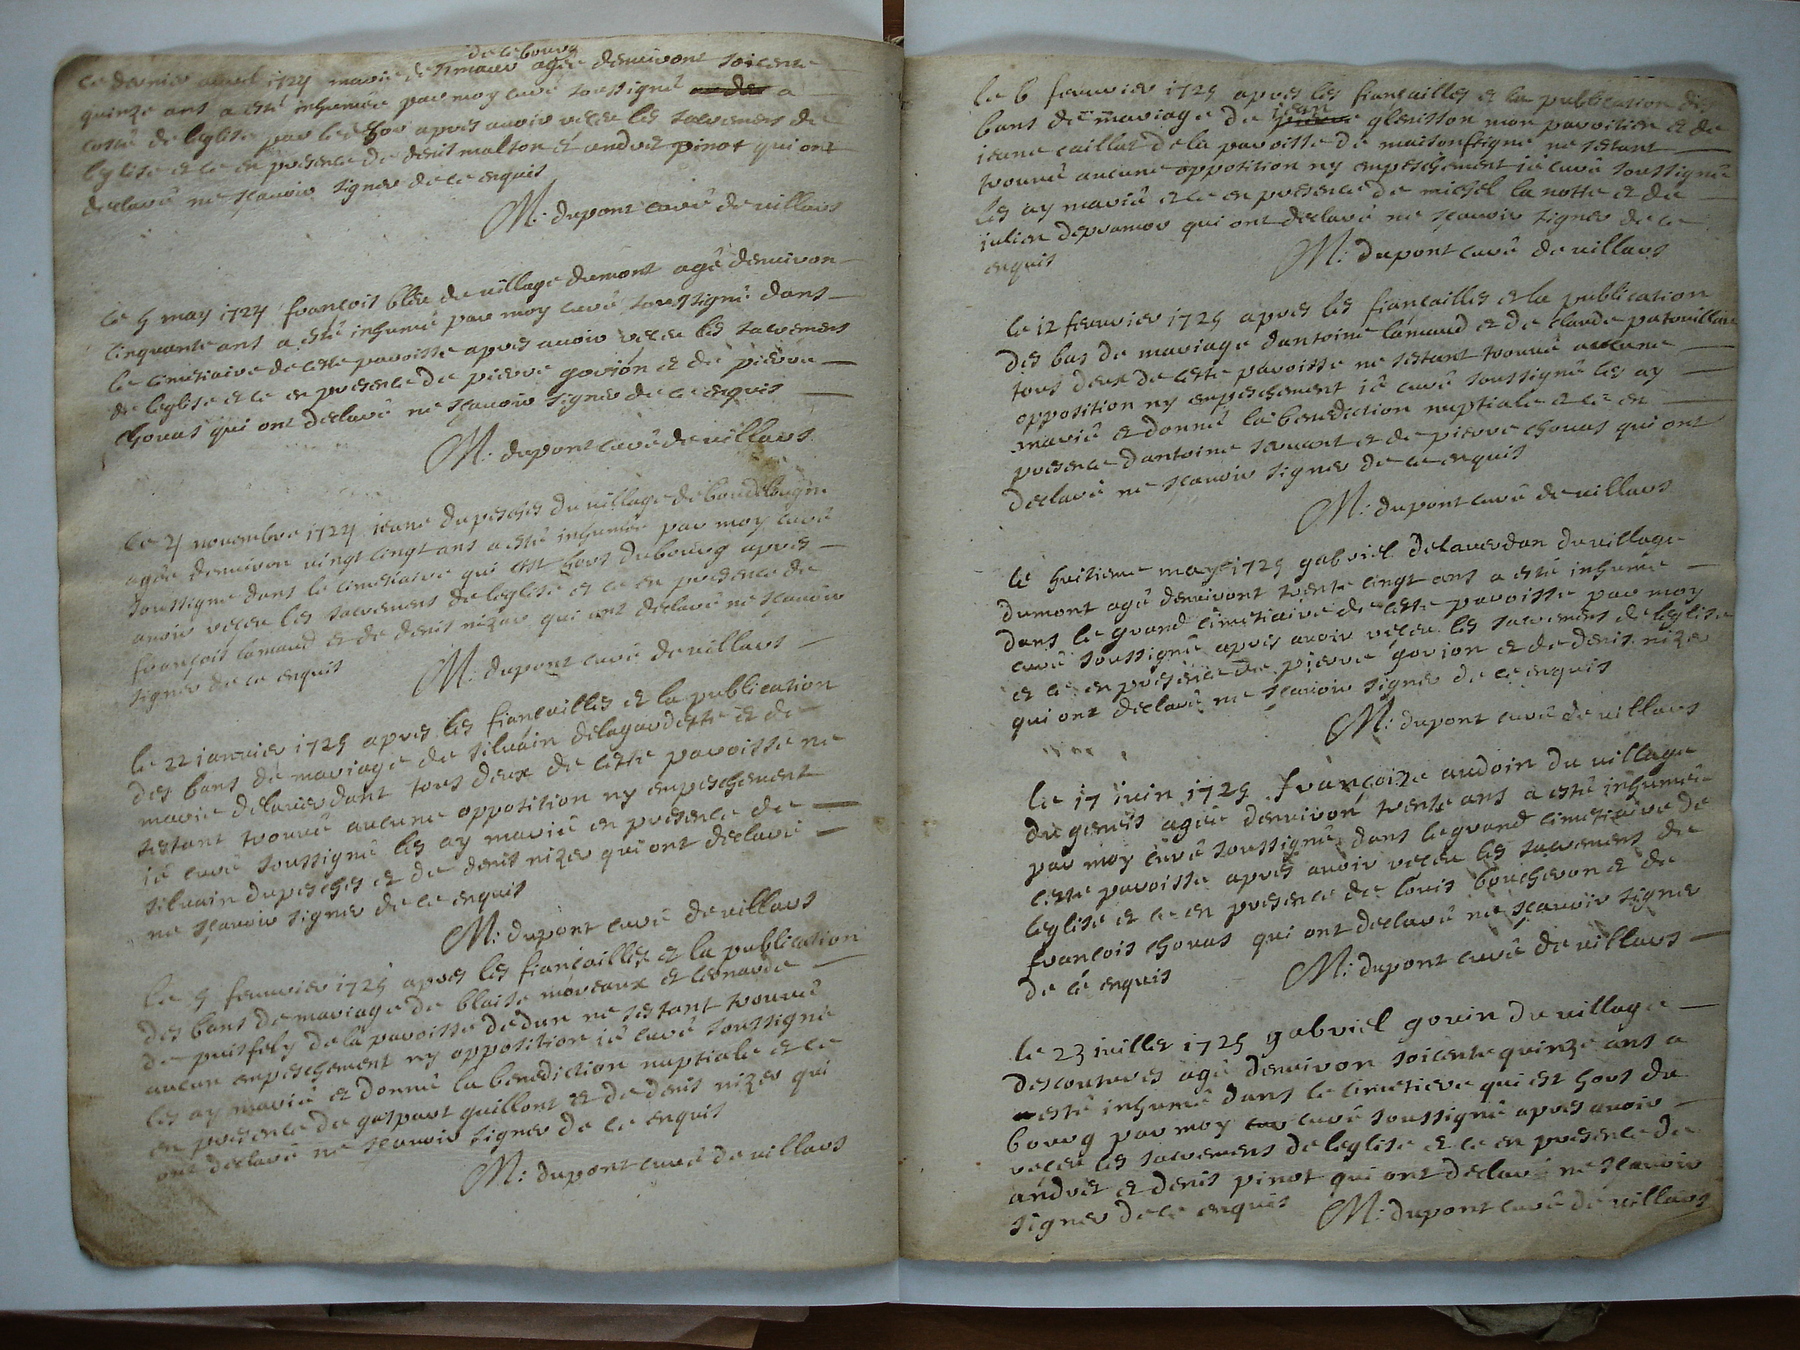 de ce bourg
ce dernier avril 1724 marie de agée denviront soicente
quinze ans a esté inhumée par moy curé soussigné a
costé de leglise par apres avoir receu les sacremens de
leglise et ce en presence de denis malton et andret pinot qui ont
declaré ne scavoir signer de ce enquis
M: dupont curé de villars
le 5 may 1724 françois bléu du village dumont agé denviron
cinquante ans a esté inhumé par moy curé soussigné dans
le cimetiaire de cette paroisse apres avoir receu les sacremens
de leglise et ce en presence de pierre gorion et de pierre
chouas qui ont declaré ne scavoir signer de ce enquis
M: dupont curé de villars
le 21 novembre 1724 jeane dupeschés du village de
agée denviron vingt cingt ans a esté inhumée par moy curé
soussigné dans le cimetiaire qui est hors du bourg apres
avoir receu les sacremens de leglise et ce en presence de
françois lamaud et de denis nizer qui ont declaré ne scavoir
signer de ce enquis
M: dupont curé de villars
le 22 janvier 1725 apres les fiançailles et la publication
des bans de mariage de silvain delagardette et de
marie delaverdant tous deux de cette paroisse ne
sestant trouvé aucune oppotition ny enpeschement
jé curé soussigné les ay marié en presence de
silvain dupesches et de denis nizer qui ont declaré
ne scavoir signer de ce enquis
M: dupont curé de villars
le 5 fevrvier 1725 apres les fiançailles et la publication
des bans de mariage de blaise moreaux et leonarde
de puisfely de la paroisse de dun ne sestant trouvé
aucun enpeschement ny oppotition jé curé soussigné
les ay marié et donné la benediction nuptiale et ce
en presence de gaspart guillont et de denis nizer qui
ont declaré ne scavoir signer de ce enquis
M: dupont curé de villars
le 6 fevrvier 1725 apres les fiançailles et la publication des
bans de mariage de jean glenisson mon paroitien et de
jeane caillat de la paroisse de maisonfeigne ne sestant
trouvé aucune oppotition ny enpeschement jé curé soussigné
les ay marié et ce en presence de michel la notte et de
julien depramor qui ont declaré ne scavoir signer de ce
enquis
M: dupont curé de villars
le 12 fevrvier 1725 apres les fiançailles et la publication
des bas de mariage dantoine lamaud et de claude patouillard
tous deux de cette paroisse ne sestant trouvé aucune
oppotition ny enpeschement jé curé soussigné les ay
marié et donné la benediction nuptiale et ce en
presence dantoine servant et de pierre chouas qui ont
declaré ne scavoir signer de ce enquis
M: dupont curé de villars
le huitieme may 1725 gabriel delaverdan du village
dumont agé denviront trente cingt ans a esté inhumé
dans le grand cimetiaire de cette paroisse par moy
curé soussigné apres avoir receu les sacremens de leglise
et ce en presence de pierre gorion et de denis nizer
qui ont declaré ne scavoir signer de ce enquis
M: dupont curé de villars
le 17 juin 1725 françoize audoin du village
du genets agée denviron trente ans a esté inhumée
par moy curé soussigné dans le grand cimetiere de
cette paroisse apres avoir receu les sacremens de
leglise et ce en presence de louis boucheron et de
françois chouas qui ont declaré ne scavoir signer
de ce enquis
M: dupont curé de villars
le 23 juillet 1725 gabriel gouin du village
descoutures agé denviron soicente quinze ans a
esté inhumé dans le cimetiere qui est hors du
bourg par moy curé soussigné apres avoir
receu les sacremens de leglise et ce en presence de
andret et denis pinot qui ont declaré ne scavoir
signer de ce enquis
M: dupont curé de villars